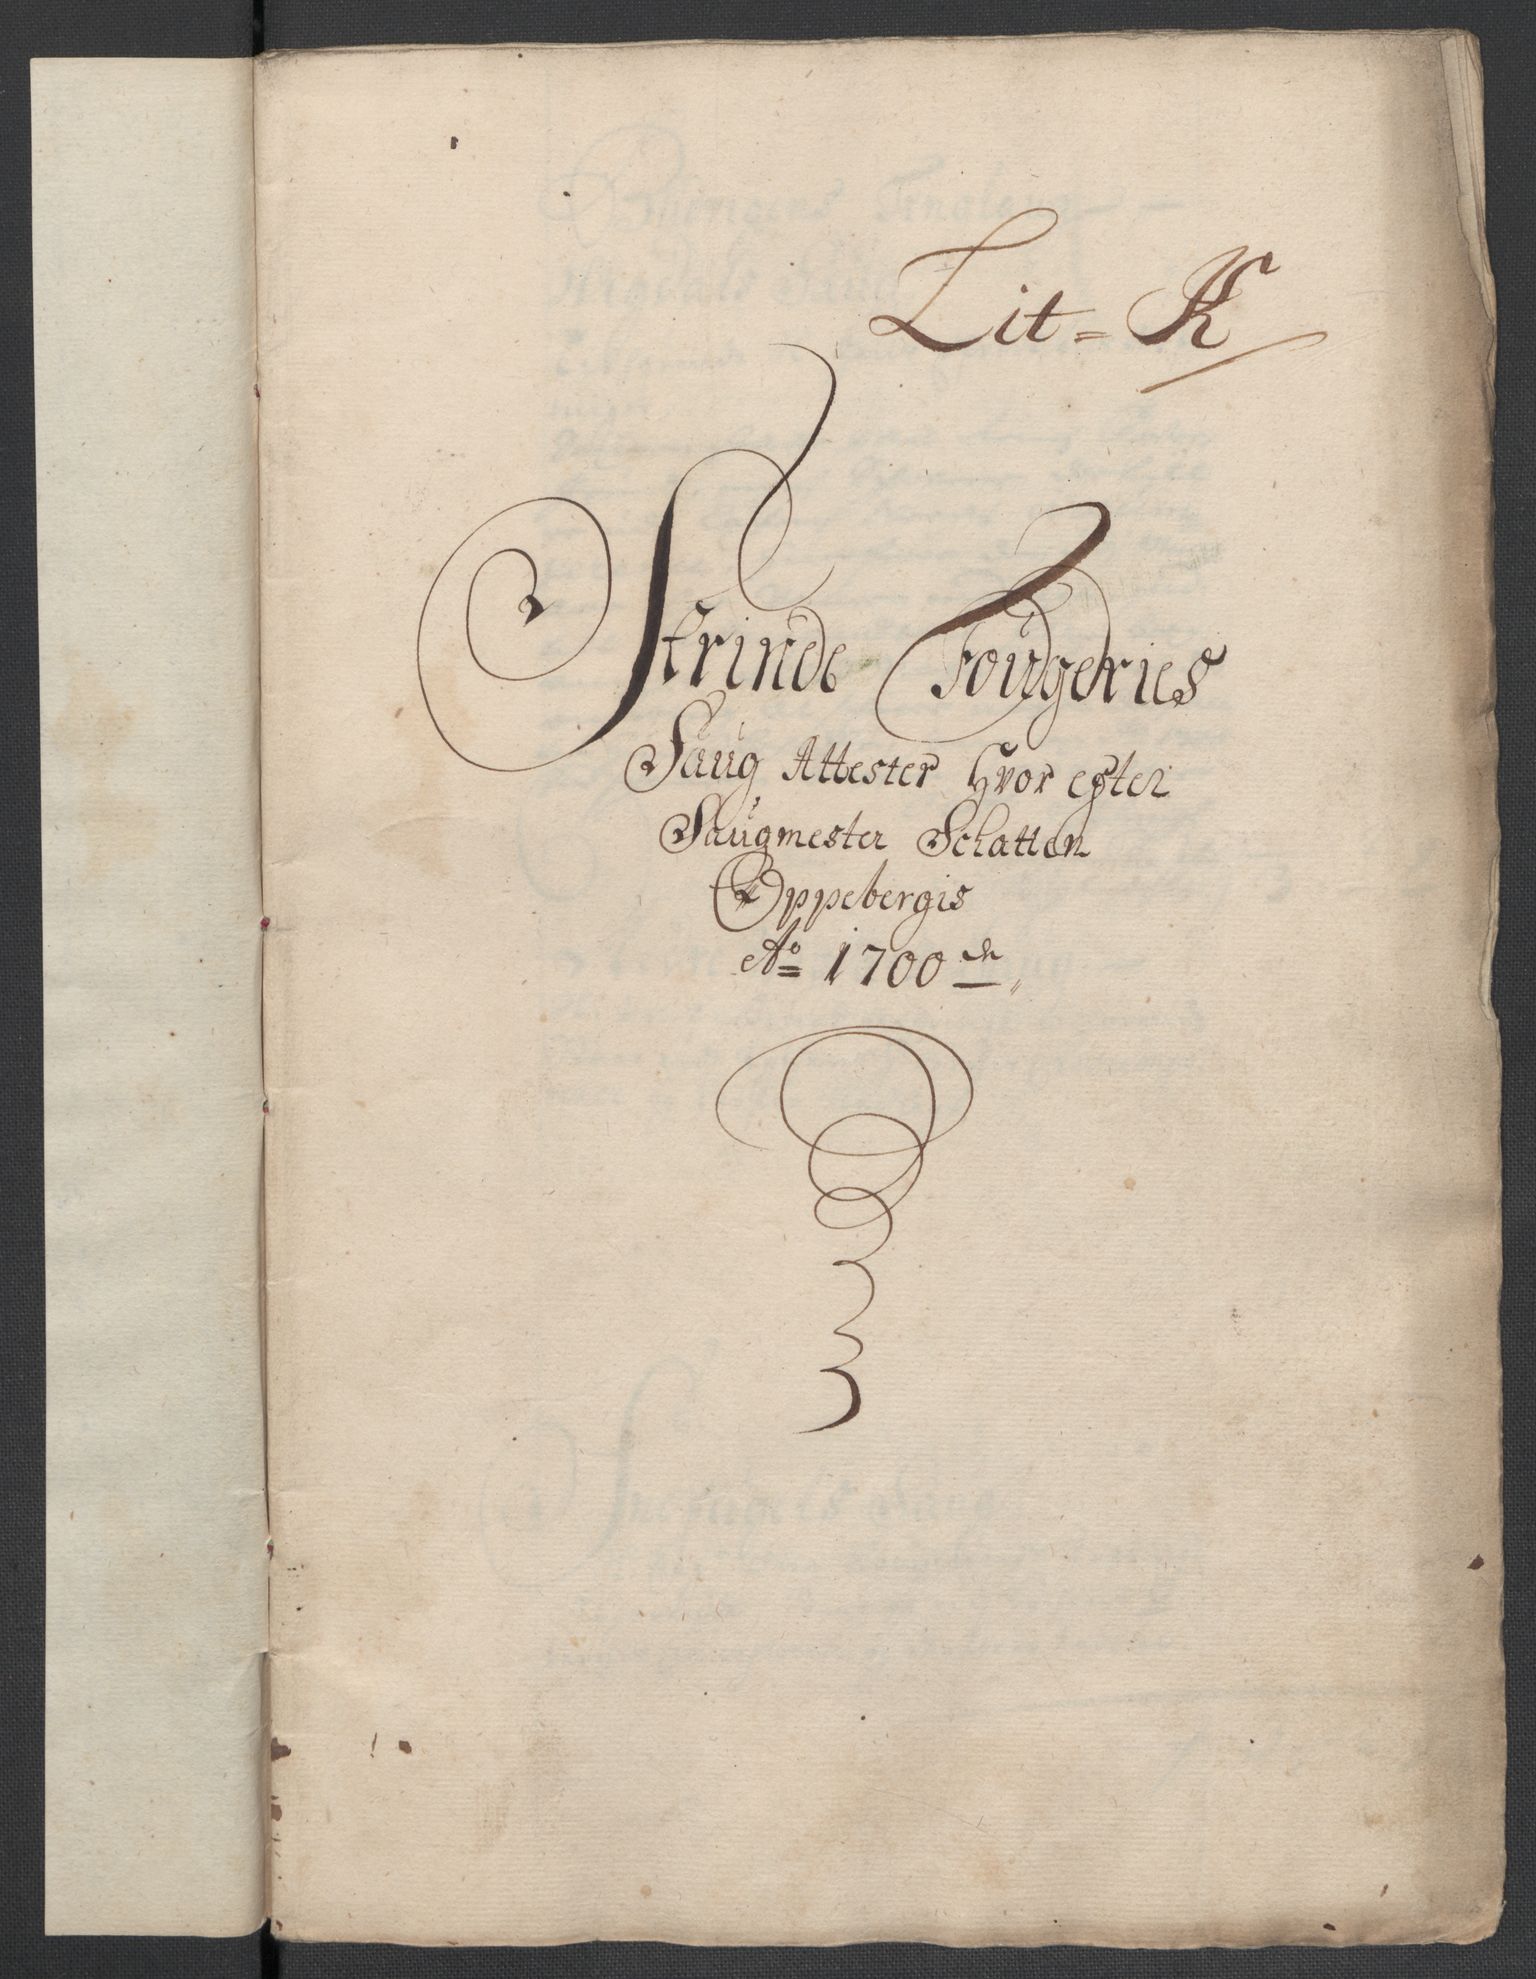 Lit= K
Strinde Fougeries
Saug Attester Hvor efter
Saugmester Schatten
Oppebergis
Ao= 1700 de